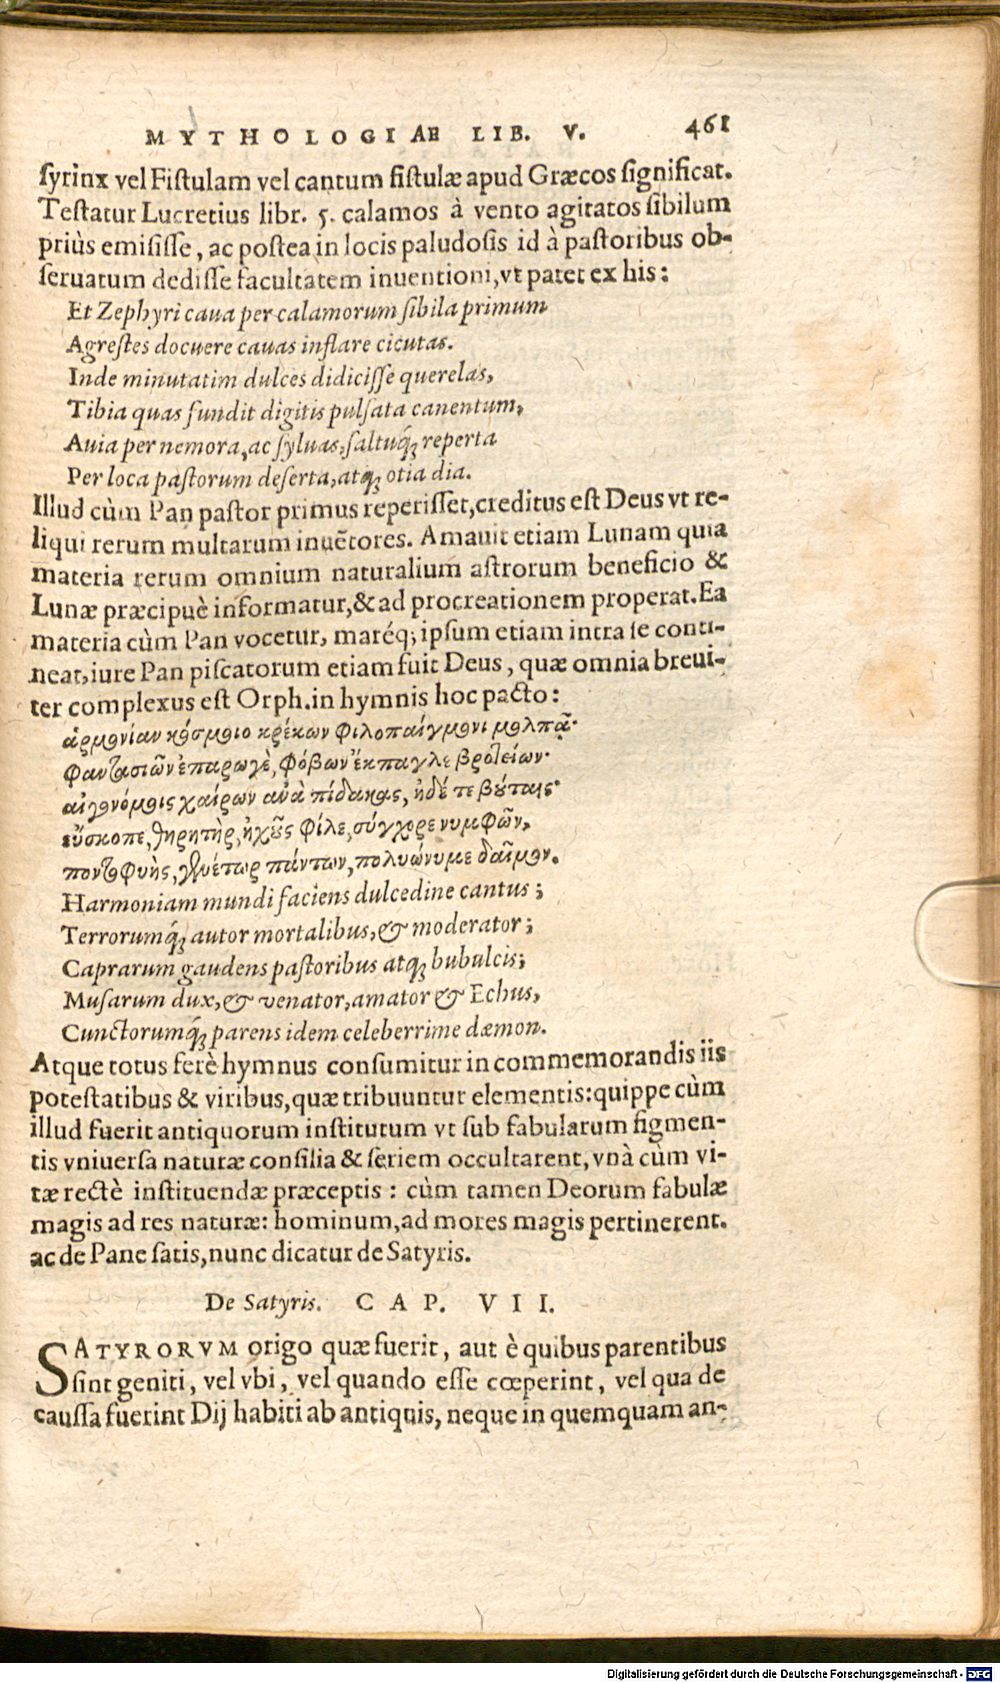 MYTHOLOGIAE LIB. V. 461
syrinx vel Fistulam vel cantum fistulæ apud Græcos significat.
Testatur Lucretius libr. 5. calamos à vento agitatos sibilum
priùs emisisse, ac postea in locis paludosis id à pastoribus ob-
seruatum dedisse facultatem inuentioni, vt patet ex his:
Et Zephyri caua per calamorum sibila primum
Agrestes docuere cauas inflare cicutas.
Inde minutatim dulces didicisse querelas,
Tibia quas fundit digitis pulsata canentum,
Auia per nemora, ac syluas, saltuq́; reperta
Per loca pastorum deserta, atq; otia dia.
Illud cùm Pan pastor primus reperisset, creditus est Deus vt re-
liqui rerum multarum inuẽtores. Amauit etiam Lunam quia
materia rerum omnium naturalium astrorum beneficio &
Lunæ præcipuè informatur, & ad procreationem properat. Ea
materia cùm Pan vocetur, maréq; ipsum etiam intra se conti-
neat, iure Pan piscatorum etiam fuit Deus, quæ omnia breui-
ter complexus est Orph. in hymnis hoc pacto:
ἁρμονίαν κόσμοιο κρέκων φιλοπαίγμονι μολπᾷ·
φαντασιῶν ἐπαρωγὲ, φόβων ἔκπαγλε βροτείων·
αἰγονόμοις χαίρων ἀνὰ πίδακας, ἠδέ τε βούταις·
εὔσκοπε, θηρητὴρ, ἠχοῦς φίλε, σύγχορε νυμφῶν,
ποντοφυὴς, γενέτωρ πάντων, πολυώνυμε δαῖμον.
Harmoniam mundi faciens dulcedine cantus;
Terrorumq́; autor mortalibus, & moderator;
Caprarum gaudens pastoribus atq; bubulcis;
Musarum dux, & venator, amator & Echus,
Cunctorumq́; parens idem celeberrime dæmon.
Atque totus ferè hymnus consumitur in commemorandis iis
potestatibus & viribus, quæ tribuuntur elementis: quippe cùm
illud fuerit antiquorum institutum vt sub fabularum figmen-
tis vniuersa naturæ consilia & seriem occultarent, vnà cùm vi-
tæ rectè instituendæ præceptis: cùm tamen Deorum fabulæ
magis ad res naturæ: hominum, ad mores magis pertinerent.
ac de Pane satis, nunc dicatur de Satyris.
De Satyris. CAP. VII.
SATYRORVM origo quæ fuerit, aut è quibus parentibus
sint geniti, vel vbi, vel quando esse cœperint, vel qua de
caussa fuerint Dij habiti ab antiquis, neque in quemquam an-
Digitalisierung gefördert durch die Deutsche Forschungsgemeinschaft - DFG